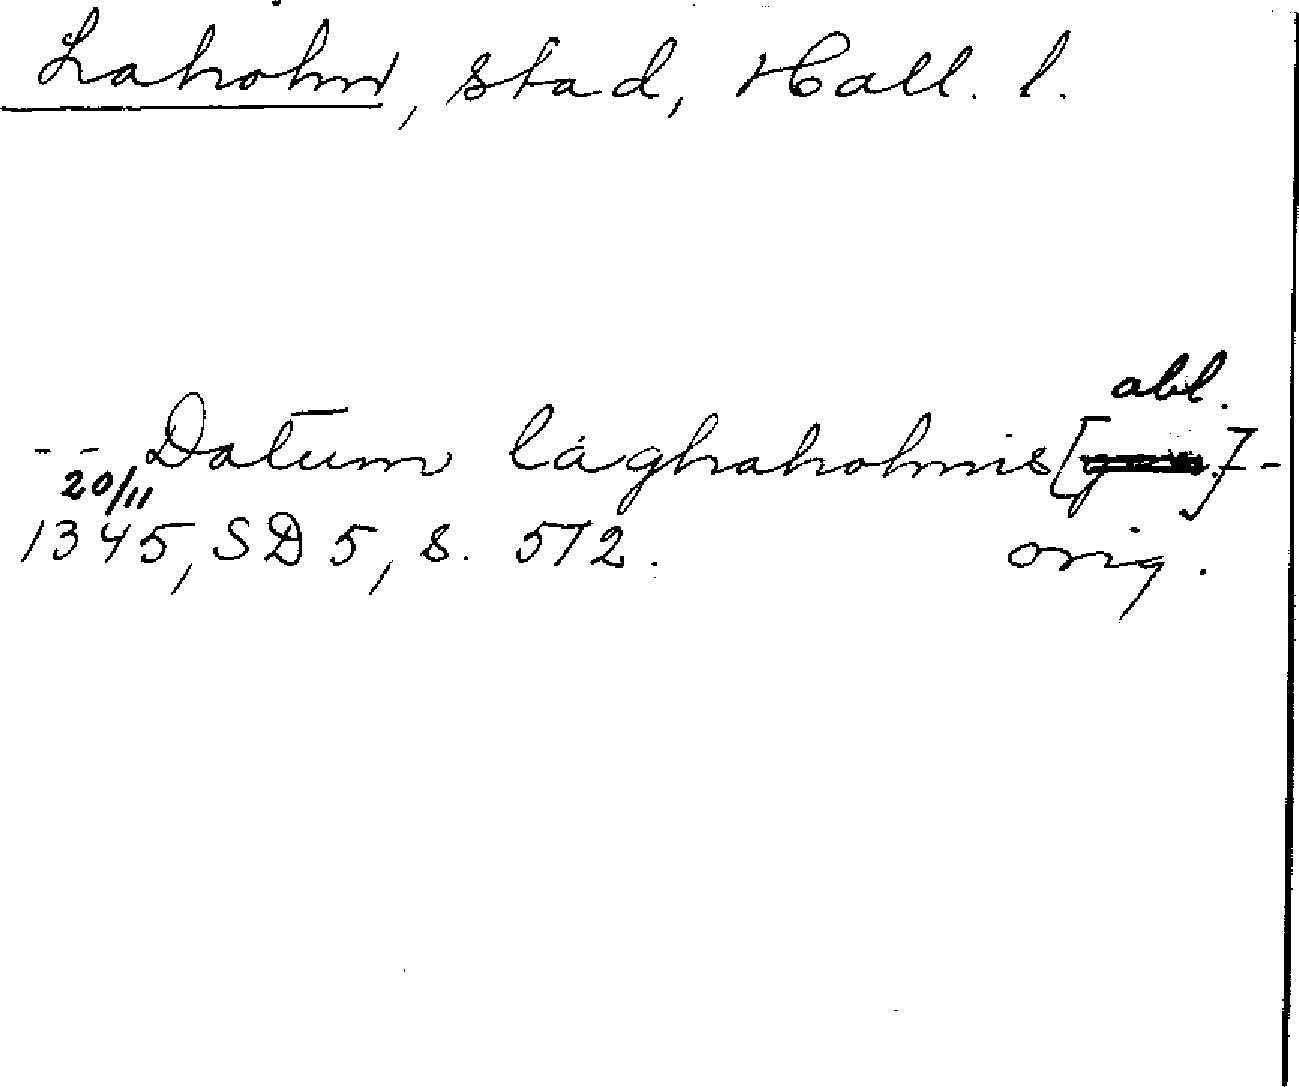 Laholm, stad, Hall. l.
abl.
- - Datum laghaholmis [gen.] -
20/11
1345, SD 5, s. 572. orig.